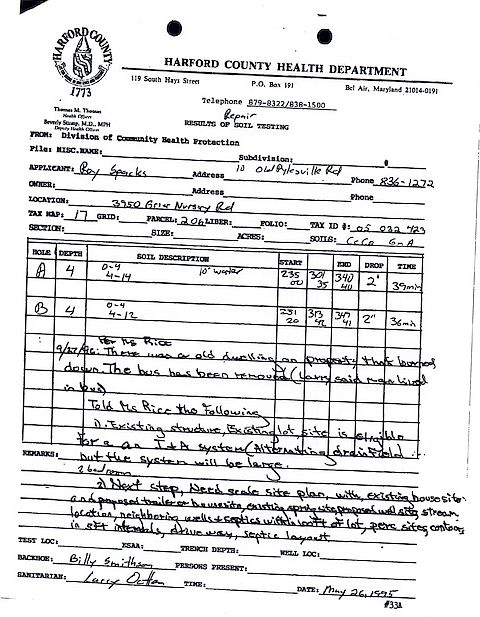 HARFORD COUNTY
1773
HARFORD COUNTY HEALTH DEPARTMENT
119 South Hays Street P.O. Box 191 Bel Air, Maryland 21014-0191
Thomas M. Thomas
Health Officer
Beverly Stump, M.D., MPH
Deputy Health Officer
Telephone 879-8322/838-1500
Repair
RESULTS OF SOIL TESTING
FROM: Division of Community Health Protection
File: MISC.NAME: Subdivision: #
APPLICANT: Roy Sparks Address 10 Old Pylesville Rd Phone 836-1272
OWNER: Address Phone
LOCATION: 3950 Grier Nursery Rd
TAX MAP: 17 GRID: PARCEL: 206 LIBER: FOLIO: TAX ID #: 05 032 423
SECTION: SIZE: ACRES: SOILS: CcC2 GnA
HOLE DEPTH SOIL DESCRIPTION START END DROP TIME
A 4 0-4 4-14 10' water 235 00 301 35 340 40 2" 39min
B 4 0-4 4-12 231 20 313 42 349 41 2" 36min
Per Ms Rice
9/27/96: There was a old dwelling on property that burned
down. The bus has been removed (Larry said man lived
in bus)
Told Ms Rice the following
1). Existing structure, Existing lot, site is eligible
For a an I & A system (Alternating drainfield
REMARKS: but the system will be large.
2 bedroom
2) Next step, Need scale site plan, with, existing house site
and proposed trailer or house site, existing spring site proposed well site, stream
location, neighboring wells & septics within 100ft of lot, perc sites contours
in 5FT intervals, driveway, septic layout
TEST LOC: ESAA: TRENCH DEPTH: WELL LOC:
BACKHOE: Billy Smithson PERSONS PRESENT:
SANITARIAN: Larry TIME: DATE: May 26, 1995
#331